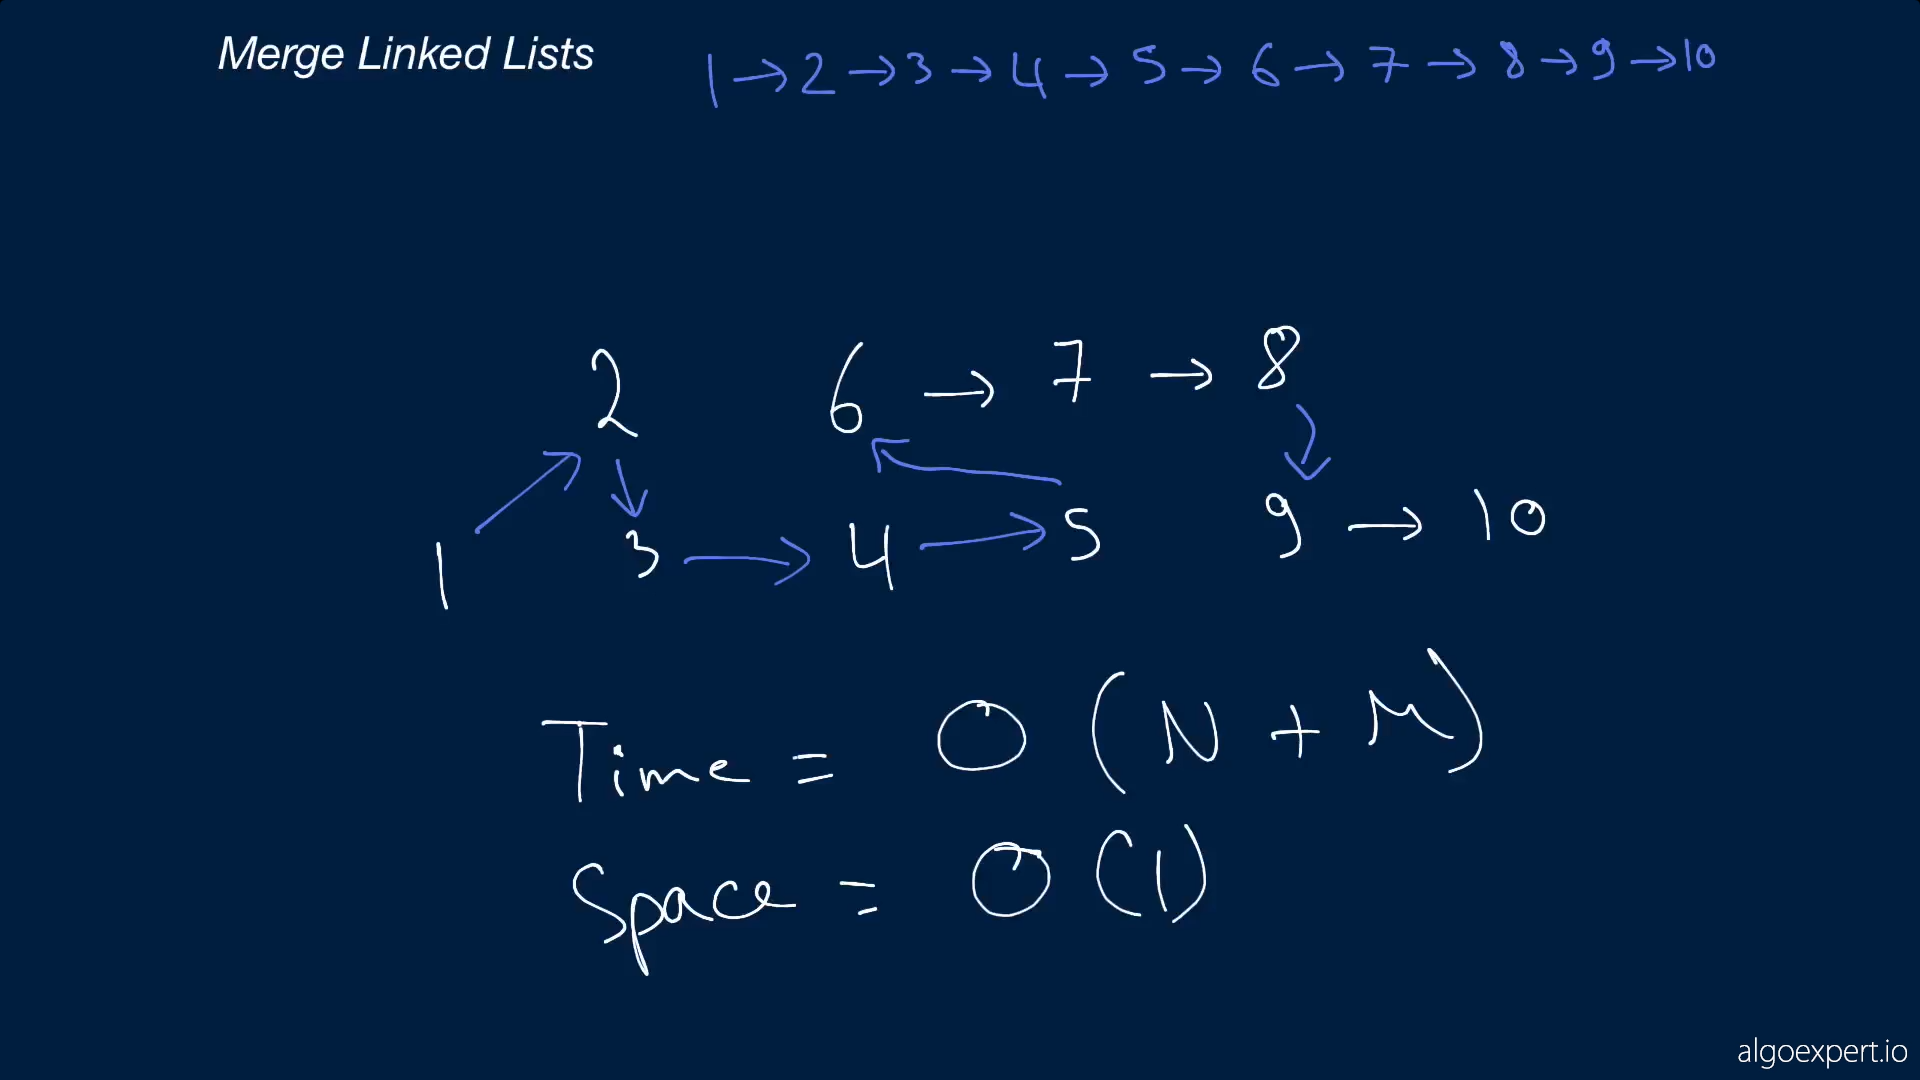 Merge Linked Lists
1 → 2 → 3 → 4 → 5 → 6 → 7 → 8 → 9 → 10
2 6 → 7 → 8
1 3 → 4 → 5 9 → 10
Time = O(N + M)
Space = O(1)
algoexpert.io